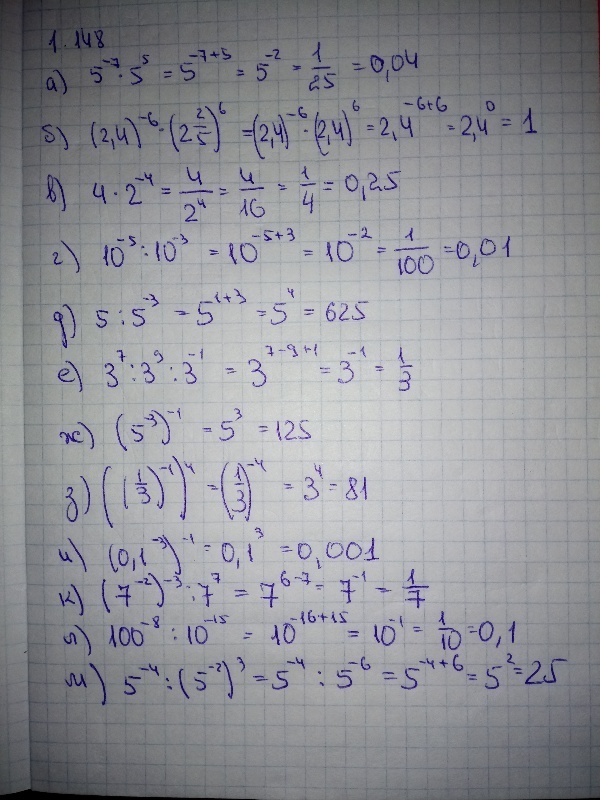 1.148
а) 5⁻⁷ · 5⁵ = 5⁻⁷⁺⁵ = 5⁻² = 1/25 = 0,04
б) (2,4)⁻⁶ · (2 2/5)⁶ = (2,4)⁻⁶ · (2,4)⁶ = 2,4⁻⁶⁺⁶ = 2,4⁰ = 1
в) 4 · 2⁻⁴ = 4/2⁴ = 4/16 = 1/4 = 0,25
г) 10⁻⁵ : 10⁻³ = 10⁻⁵⁺³ = 10⁻² = 1/100 = 0,01
д) 5 : 5⁻³ = 5¹⁺³ = 5⁴ = 625
е) 3⁷ : 3⁹ : 3⁻¹ = 3⁷⁻⁹⁺¹ = 3⁻¹ = 1/3
ж) (5⁻³)⁻¹ = 5³ = 125
з) ((1/3)⁻¹)⁴ = (1/3)⁻⁴ = 3⁴ = 81
и) (0,1⁻³)⁻¹ = 0,1³ = 0,001
к) (7⁻²)⁻³ : 7⁷ = 7⁶⁻⁷ = 7⁻¹ = 1/7
л) 100⁻⁸ : 10⁻¹⁵ = 10⁻¹⁶⁺¹⁵ = 10⁻¹ = 1/10 = 0,1
м) 5⁻⁴ : (5⁻²)³ = 5⁻⁴ : 5⁻⁶ = 5⁻⁴⁺⁶ = 5² = 25